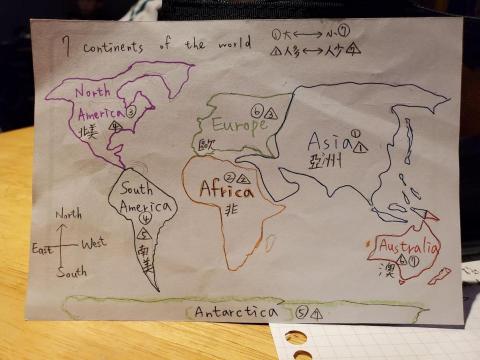 7 continents of the world
①大⟷小⑦
△1人多⟷人少△7
North
America③
北美 △4
⑥△3
Europe
歐
Asia①△1
亞洲
②△2
Africa
非
South
America
④
△5
南美
North
East West
South
Australia
⑦
澳
Antarctica ⑤